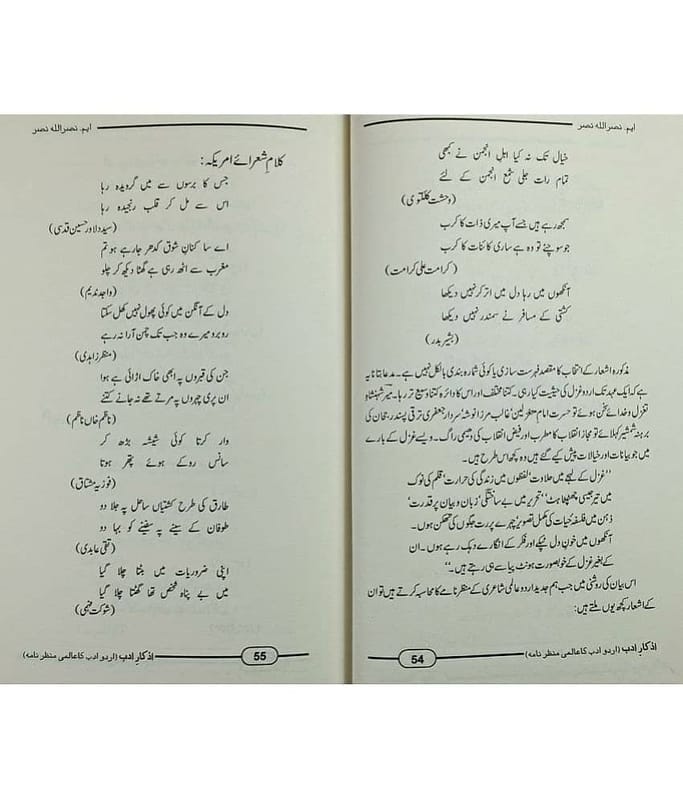 ایم. نصر الله نصر
خیال تک نہ کیا اہلِ انجمن نے کبھی
تمام رات جلی شمع انجمن کے لئے
(وحشت کلکتوی)
سمجھ رہے ہیں جسے آپ میری ذات کا کرب
جو سوچئے تو وہ ہے ساری کائنات کا کرب
(کرامت علی کرامت)
آنکھوں میں رہا دل میں اتر کر نہیں دیکھا
کشتی کے مسافر نے سمندر نہیں دیکھا
(بشیر بدر)
مذکورہ اشعار کے انتخاب کا مقصد فہرست سازی یا کوئی شمارہ بندی بالکل نہیں ہے۔ مدعا بتانا یہ
ہے کہ ایک عہد تک اردو غزل کی حیثیت کیا رہی۔ کتنا مختلف اور اس کا دائرہ کتنا وسیع تر رہا۔ میرؔ شہنشاہِ
تغزل وخدائے سخن ہوئے تو حسرت امام متغزلین' غالب مرزا نوشہ' سردار جعفری ترقی پسند رجحان کی
برہنہ شمشیر کہلائے تو مجاز انقلاب کا مطرب اور فیض انقلاب کی دھیمی راگ۔ ویسے غزل کے بارے
میں جو بیانات اور خیالات پیش کیے گئے ہیں وہ کچھ اس طرح ہیں۔
''غزل کے لہجے میں حلاوت' لفظوں میں زندگی کی حرارت' قلم کی نوک
میں تیر جیسی چبھاہٹ'' تحریر میں بے ساختگی' زبان و بیان پر قدرت'
ذہن میں فلسفۂ حیات کی مکمل تصویر' چہرے پر رت جگوں کی تھکن ہوں۔
آنکھوں میں خونِ دل ٹپکے اور فکر کے انگارے دہک رہے ہوں۔ ان
کے بغیر غزل کے خوبصورت ہونٹ پیاسے ہی رہتے ہیں۔''
اس بیان کی روشنی میں جب ہم جدید اردو عالمی شاعری کے منظر نامے کا محاسبہ کرتے ہیں تو ان
کے اشعار کچھ یوں ملتے ہیں:
اذکارِ ادب (اردو ادب کا عالمی منظر نامہ)
54
ایم. نصر الله نصر
کلامِ شعرائے امریکہ:
جس کا برسوں سے میں گرویدہ رہا
اس سے مل کر قلب رنجیدہ رہا
(سید دلاور حسین قدسی)
اے ساکنانِ شوق کدھر جارہے ہو تم
مغرب سے اٹھ رہی ہے گھٹا دیکھ کر چلو
(واجد ندیم)
دل کے آنگن میں کوئی پھول نہیں کھل سکتا
روبرو میرے وہ جب تک چمن آرا نہ رہے
(منظر زاہدی)
جن کی قبروں پہ ابھی خاک اڑائی ہے ہوا
ان پری چہروں پہ مرتے تھے نہ جانے کتنے
(ناظم خاں ناظم)
وار کرتا کوئی شیشہ بڑھ کر
سانس روکے ہوئے پتھر ہوتا
(فوزیہ مشتاق)
طارق کی طرح کشتیاں ساحل پہ جلا دو
طوفان کے سینے پہ سفینے کو بہا دو
(تقی عابدی)
اپنی ضروریات میں بٹتا چلا گیا
میں بے پناہ شخص تھا گھٹتا چلا گیا
(شوکت فہمی)
اذکارِ ادب (اردو ادب کا عالمی منظر نامہ)
55